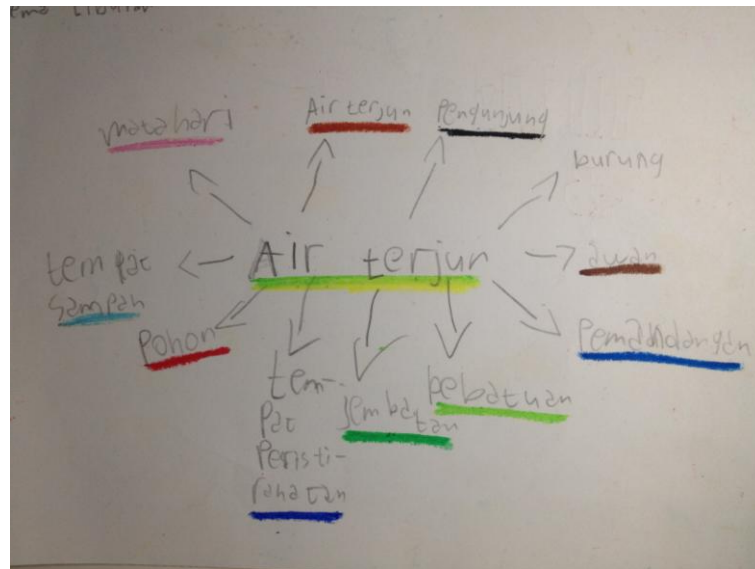 matahari
Air terjun
Pengunjung
burung
tempat
sampah
Air terjun
awan
Pohon
Pemandangan
tem-
pat
Peristi-
rahatan
jemba
tan
bebatuan